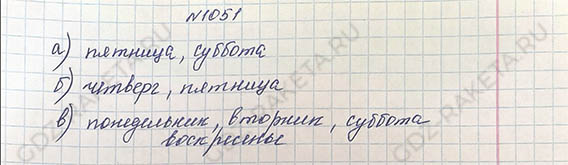 №1051
а) пятница, суббота
б) четверг, пятница
в) понедельник, вторник, суббота
воскресенье
GDZ-RAKETA.RU
GDZ-RAKETA.RU